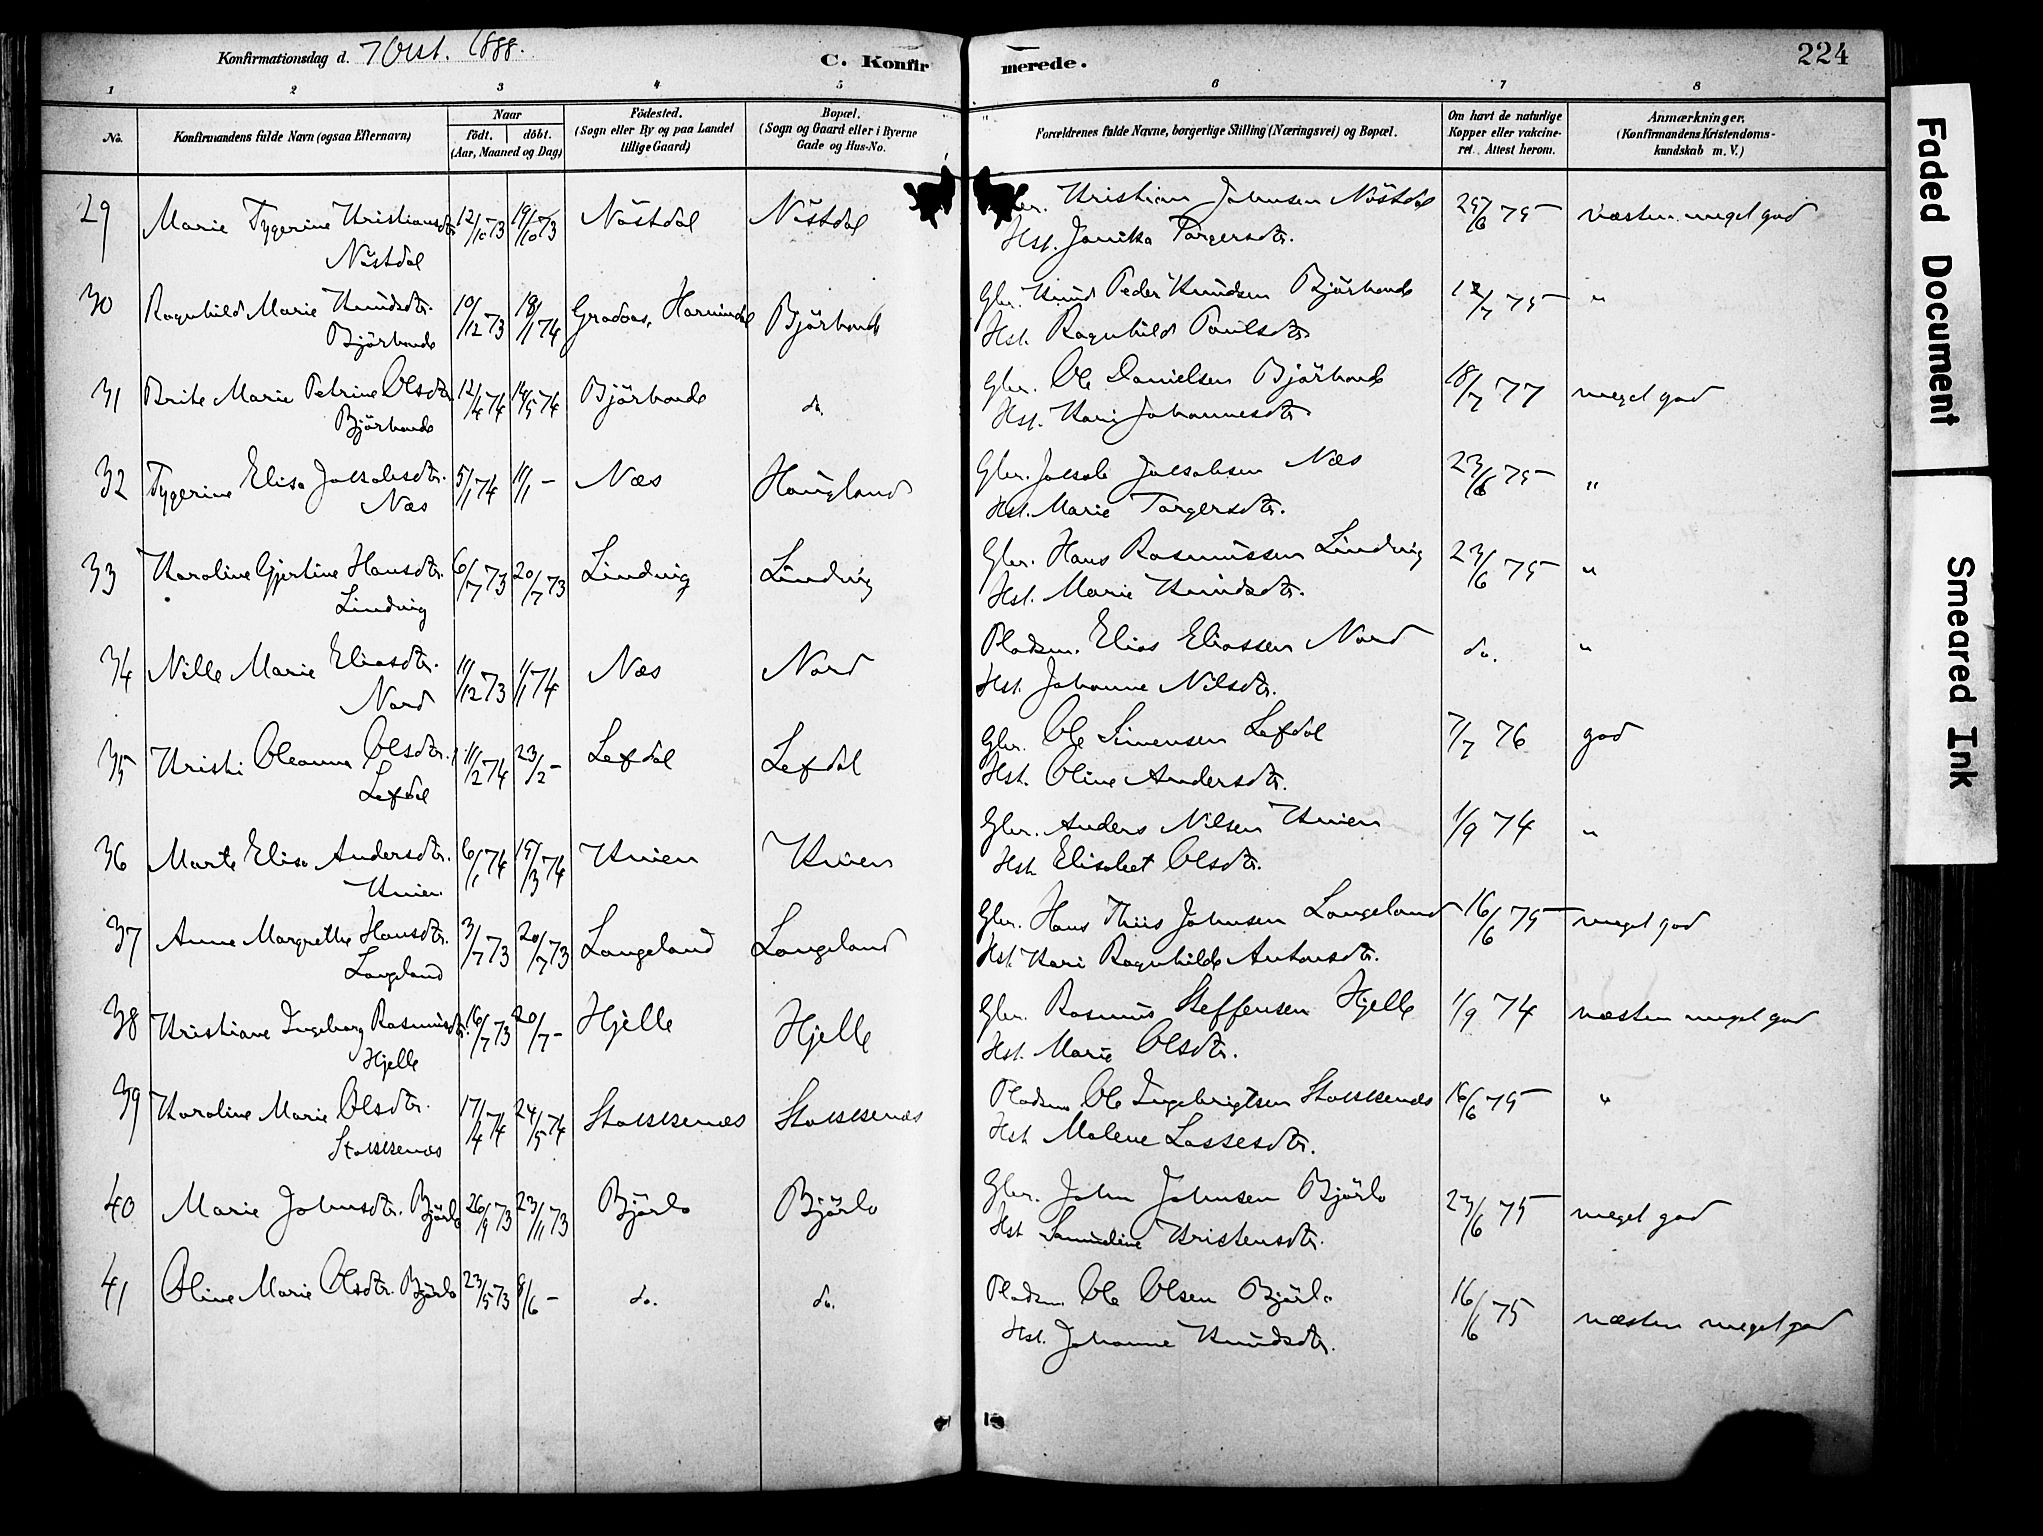 Konfirmationsdag d. 7 Oct. 1888.
C. Konfirmerede.
224
1 2 3 4 5 6 7 8
No.
Konfirmandens fulde Navn (ogsaa Efternavn)
Naar
födt. döbt.
(Aar, Maaned og Dag)
Födested.
(Sogn eller By og paa Landet
tillige Gaard)
Bopæl.
(Sogn og Gaard eller i Byerne
Gade og Hus-No.
Forældrenes fulde Navne, borgerlige Stilling (Næringsvei) og Bopæl.
Om havt de naturlige
Kopper eller vakcine-
ret. Attest herom.
Anmærkninger.
(Konfirmandens Kristendoms-
kundskab m. V.)
29 Marie Tygerine Kristiansdtr. 12/10 73 19/10 73 Nöstdal Nöstdal Gbr. Kristian Johnsen Nöstdal 25/6 75 næsten meget god
Nöstdal Hst. Janika Torgersdtr.
30 Ragnhild Marie Knudsdtr. 10/12 73 18/1 74 Gradaas, Hornindal Björhovde Gbr. Knud Peder Knudsen Björhovde 12/7 75 "
Björhovde Hst. Ragnhild Paulsdtr.
31 Brite Marie Petrine Olsdtr. 12/4 74 14/5 74 Björhovde do. Gbr. Ole Danielsen Björhovde 18/7 77 meget god
Björhovde Hst. Kari Johannesdtr.
32 Tygerine Elisa Jakobsdtr. 5/1 74 11/1 - Næs Haugland Gbr. Jakob Jakobsen Næs 23/6 75 "
Næs Hst. Marie Torgersdtr.
33 Karoline Gjertine Hansdtr. 6/7 73 20/7 73 Lindvig Lindvig Gbr. Hans Rasmussen Lindvig 23/6 75 "
Lindvig Hst. Marie Knudsdtr.
34 Nille Marie Eliasdtr. 11/12 73 1/1 74 Næs Nord Pladsm. Elias Eliassen Nord do. "
Nord Hst. Johanne Nilsdtr.
35 Kristi Oleanna Olsdtr. 11/2 74 23/2 - Lefdal Lefdal Gbr. Ole Simensen Lefdal 7/7 76 god
Lefdal Hst. Oline Andersdtr.
36 Marte Elisa Andersdtr. 6/1 74 15/3 74 Kvien Kvien Gbr. Anders Nilsen Kvien 1/9 74 "
Kvien Hst. Elisabet Olsdtr.
37 Anne Margrethe Hansdtr. 3/7 73 20/7 73 Langeland Langeland Gbr. Hans Thiis Johnsen Langeland 16/6 75 meget god
Langeland Hst. Kari Ragnhilde Antonsdtr.
38 Kristiane Ingeborg Rasmusdtr. 16/7 73 20/7 - Hjelle Hjelle Gbr. Rasmus Steffensen Hjelle 1/9 74 næsten meget god
Hjelle Hst. Marie Olsdtr.
39 Karoline Marie Olsdtr. 17/4 74 24/5 74 Stokkenæs Stokkenæs Pladsm. Ole Ingebrigtsen Stokkenæs 16/6 75 "
Stokkenæs Hst. Malene Lassesdtr.
40 Marie Johnsdtr. Björlo 26/9 73 23/11 73 Björlo Björlo Gbr. John Johnsen Björlo 23/6 75 meget god
Hst. Samueline Kristensdtr.
41 Oline Marie Olsdtr. Björlo 23/5 73 8/6 - do. do. Pladsm. Ole Olsen Björlo 16/6 75 næsten meget god
Hst. Johanne Knudsdtr.
Faded Document
Smeared Ink